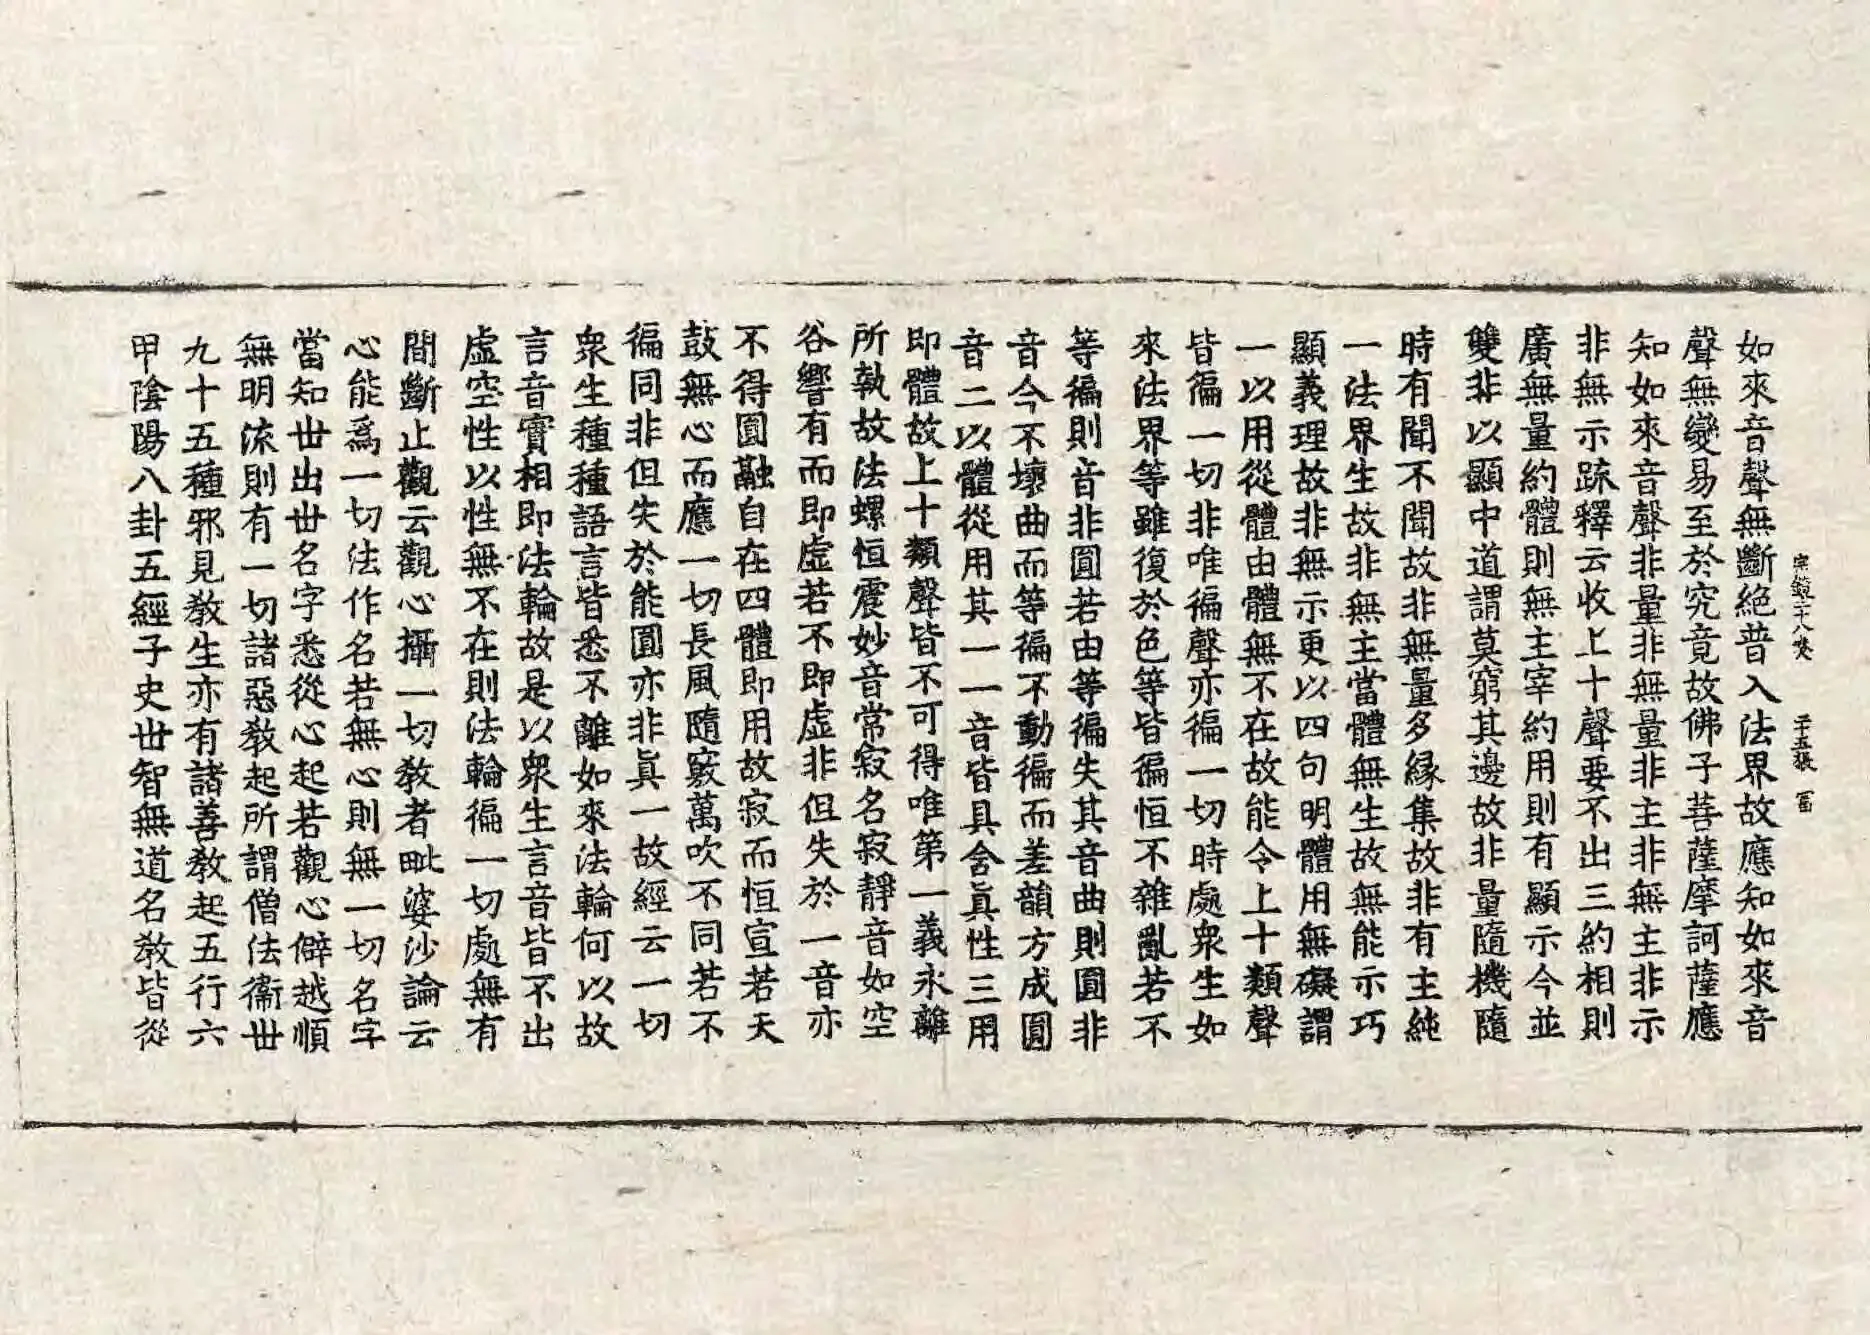 宗鏡二十八卷 第十五張 富
如來音聲無斷絕普入法界故應知如來音
聲無變易至於究竟故佛子菩薩摩訶薩應
知如來音聲非量非無量非主非無主非示
非無示疏釋云收上十聲要不出三約相則
廣無量約體則無主宰約用則有顯示今並
雙非以顯中道謂莫窮其邊故非量隨機隨
時有聞不聞故非無量多緣集故非有主純
一法界生故非無主當體無生故無能示巧
顯義理故非無示更以四句明體用無礙謂
一以用從體由體無不在故能令上十類聲
皆徧一切非唯徧聲亦徧一切時處衆生如
來法界等雖復於色等皆徧恒不雜亂若不
等徧則音非圓若由等徧失其音曲則圓非
音今不壞曲而等徧不動徧而差韻方成圓
音二以體從用其一一音皆具含眞性三用
即體故上十類聲皆不可得唯第一義永離
所執故法螺恒震妙音常寂名寂靜音如空
谷響有而即虛若不即虛非但失於一音亦
不得圓融自在四體即用故寂而恒宣若天
鼓無心而應一切長風隨竅萬吹不同若不
徧同非但失於能圓亦非眞一故經云一切
衆生種種語言皆悉不離如來法輪何以故
言音實相即法輪故是以衆生言音皆不出
虛空性以性無不在則法輪徧一切處無有
間斷止觀云觀心攝一切教者毗婆沙論云
心能爲一切法作名若無心則無一切名字
當知世出世名字悉從心起若觀心僻越順
無明流則有一切諸惡教起所謂僧法衞世
九十五種邪見教生亦有諸善教起五行六
甲陰陽八卦五經子史世智無道名教皆從